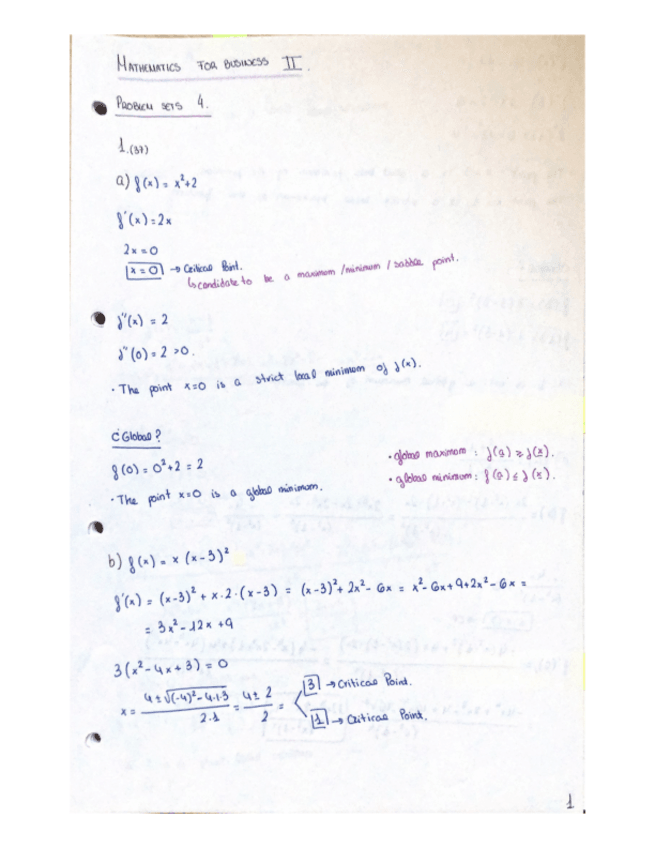 MATHEMATICS FOR BUSINESS II.
PROBLEM SETS 4.
1.(37)
a) f(x) = x²+2
f'(x) = 2x
2x = 0
x = 0 → Critical Point.
↳ candidate to be a maximum / minimum / saddle point.
f''(x) = 2
f''(0) = 2 > 0.
· The point x=0 is a strict local minimum of f(x).
¿Global?
f(0) = 0²+2 = 2
· The point x=0 is a global minimum.
· global maximum : f(a) ≥ f(x).
· global minimum : f(a) ≤ f(x).
b) f(x) = x (x-3)²
f'(x) = (x-3)² + x·2·(x-3) = (x-3)² + 2x² - 6x = x² - 6x + 9 + 2x² - 6x =
= 3x² - 12x + 9
3(x² - 4x + 3) = 0
x = (4 ± √(-4)² - 4·1·3) / 2·1 = (4 ± 2) / 2 = 3 → Critical Point.
1 → Critical Point.
1